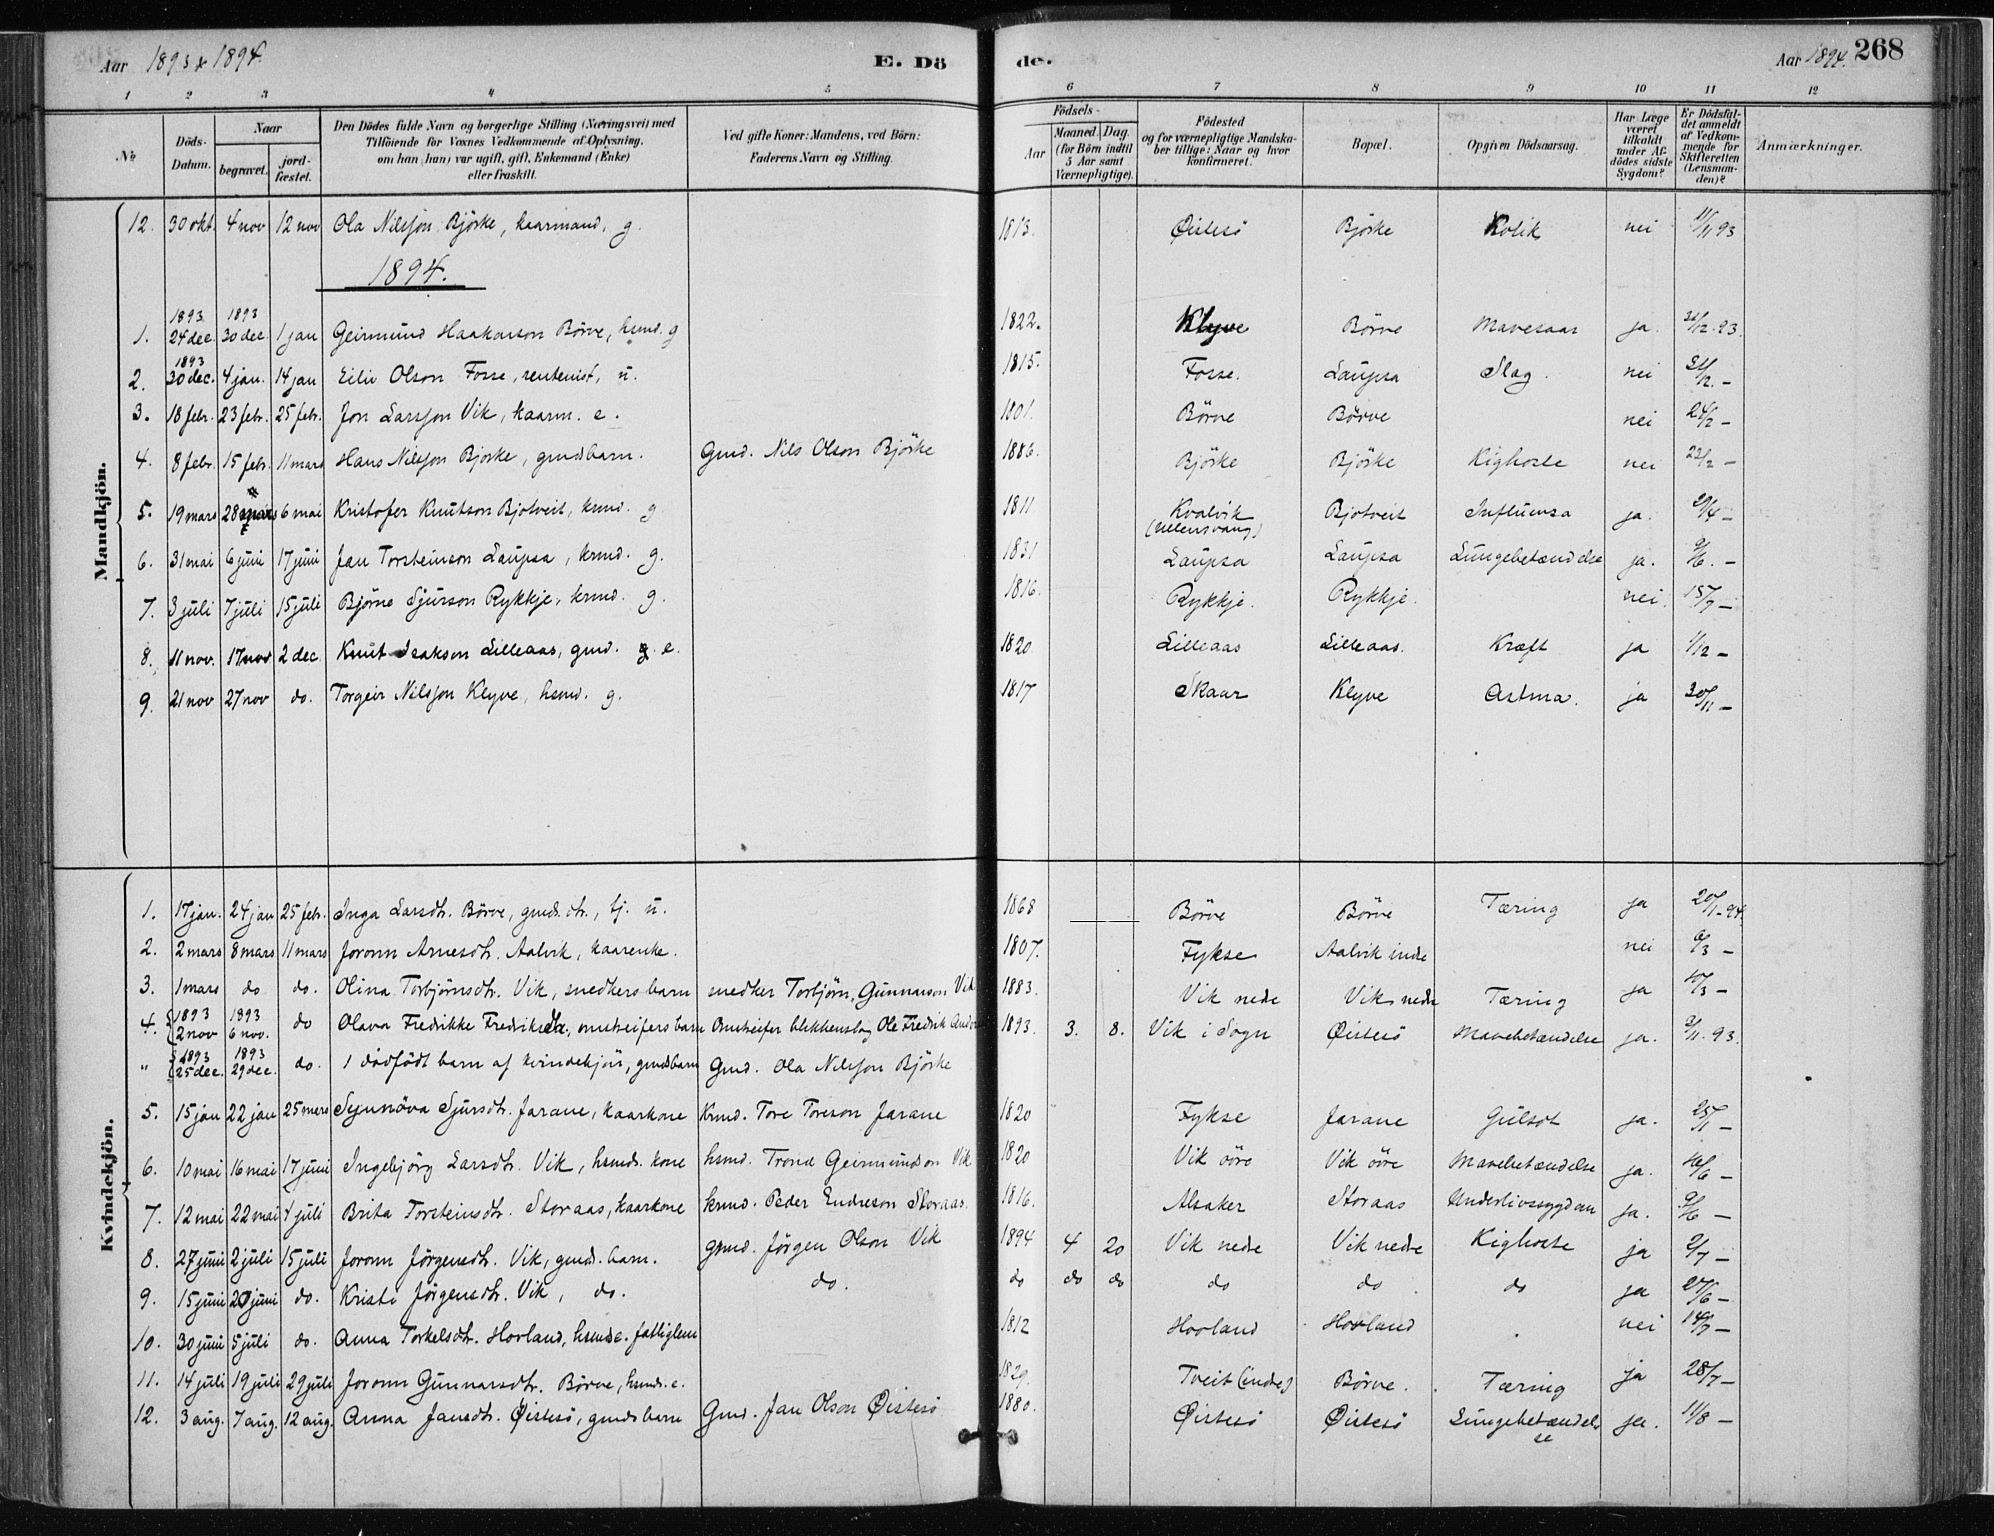 Aar 1893 & 1894.
E. Döde.
Aar 1894. 268
1 2 3 4 5 6 7 8 9 10 11 12
No.
Döds-Datum.
Naar
begravet.
jord-fæstet.
Den Dödes fulde Navn og borgerlige Stilling (Næringsvei) med
Tilföiende for Voxnes Vedkommende af Oplysning,
om han (hun) var ugift, gift, Enkemand (Enke)
eller fraskilt.
Ved gifte Koner: Mandens, ved Börn:
Faderens Navn og Stilling.
Födsels-
Aar
Maaned. Dag.
(for Börn indtil
5 Aar samt
Værnepligtige).
Födested
og for værnepligtige Mandska-
ber tillige: Naar og hvor
konfirmeret.
Bopæl.
Opgiven Dödsaarsag.
Har Læge
været
tilkaldt
under Af-
dödes sidste
Sygdom?
Er Dödsfal-
det anmeldt
af Vedkom-
mende for
Skifteretten
(Lensman-
den)?
Anmærkninger.
Mandkjön.
12. 30 okt. 4 nov 12 nov Ola Nilsson Björke, kaarmand, g. 1813. Öistesö Björke Kolik nei 11/11 93
1894.
1893 1893
1. 24 dec. 30 dec. 1 jan Geirmund Haakonson Börve, husm. g 1822. Klyve Börve Mavesaar ja 31/12. 93.
1893
2. 30 dec. 4 jan. 14 jan Eiliv Olson Fosse, rentenist, u. 1815. Fosse. Laupsa Slag. nei 31/12. –
3. 18 febr. 23 febr. 25 febr. Jon Larsson Vik, kaarm. e. 1801. Börve Börve nei 24/2 –
4. 8 febr. 15 febr. 11 mars Hans Nilsson Björke, gmdsbarn. Gmd. Nils Olson Björke 1886. Björke Björke Kighoste nei 22/2 –
5. 19 mars 28 mars 6 mai Kristofer Knutson Bjotveit, krmd. g 1811 Kvalvik Bjotveit Influensa ja. 29/4 –
(Ullensvang)
6. 31 mai 6 juni 17 juni Jan Torsteinson Laupsa, krmd. g. 1831 Laupsa Laupsa Lungebetændelse ja. 9/6. –
7. 3 juli 7 juli 15 juli Bjørne Sjurson Rykkje, krmd. g. 1816. Rykkje. Rykkje. nei. 15/7 –
8. 11 nov. 17 nov 2 dec Knut Isakson Lilleaas, gmd. g. e. 1820 Lilleaas Lilleaas. Kræft ja 1/12 –
9. 21 nov 27 nov do. Torgeir Nilsson Klyve, hsmd. g. 1817 Skaar Klyve Astma. ja 30/11 –
Kvindekjön.
1. 17 jan. 24 jan 25 febr. Inga Larsdtr. Börve, gmds. dtr., tj. u. 1868 Börve Börve Tæring ja 20/1 - 94.
2. 2 mars 8 mars 11 mars Joronn Arnesdtr. Aalvik, kaarenke. 1807. Fykse Aalvik indre nei 6/3 –
3. 1 mars do do. Olina Torbjörnsdtr. Vik, snedkers barn snedker Torbjörn Gunnarson Vik 1883. Vik nedre Vik nedre Tæring ja 10/3 –
1893 1893
4. 2 nov 6 nov. do Olava Fredrikke Fredriksdtr., omstreifers barn Omstreifer blikkenslag Ole Fredrik 1893. 3. 8. Vik i Sogn Öistesö Mavebetændelse ja. 3/11. 93.
1893 1893
" 25 dec. 29 dec. do. 1 dödfödt barn af kvindekjön, gmdsbarn Gmd. Ola Nilsson Björke
5. 15 jan 22 jan 25 mars Synnöva Sjursdtr. Jarane, kaarkone Krmd. Tore Toreson Jarane 1820 Fykse Jarane Gulsot ja. 25/1 –
6. 10 mai 16 mai 17 juni Ingebjörg Larsdtr. Vik, husmds. kone husmd. Trond Geirmundson Vik 1820 Vik övre Vik övre Mavebetændelse ja. 16/6 –
7. 12 mai 22 mai 4 juli Brita Torsteinsdtr. Storaas, kaarkone krmd. Peder Endreson Storaas. 1816. Alsaker Storaas Underlivssygdom ja. 9/6 –
8. 27 juni 2 juli 15 juli Joronn Jörgensdtr. Vik, gmds. barn. gmd. Jörgen Olson Vik 1894 4 20 Vik nedre Vik nedre Kighoste ja 2/7 –
9. 15 juni 20 juni do. Kristi Jörgensdtr. Vik, do. do. do do do do do do ja 27/6 –
10. 30 juni 5 juli do. Anna Torkelsdtr. Hovland, husmds. e. fattiglem 1812 Hovland Hovland nei 14/7 –
11. 14 juli 19 juli 29 juli Joronn Gunnarsdtr. Börve, husmds. e. 1829. Tveit (indre) Börve. Tæring ja 28/7 –
12. 3 aug. 7 aug. 12 aug. Anna Jansdtr. Öistesö, gmdsbarn Gmd. Jan Olson Öistesö 1880. Öistesö Öistesö Lungebetændel- ja. 11/8 –
se